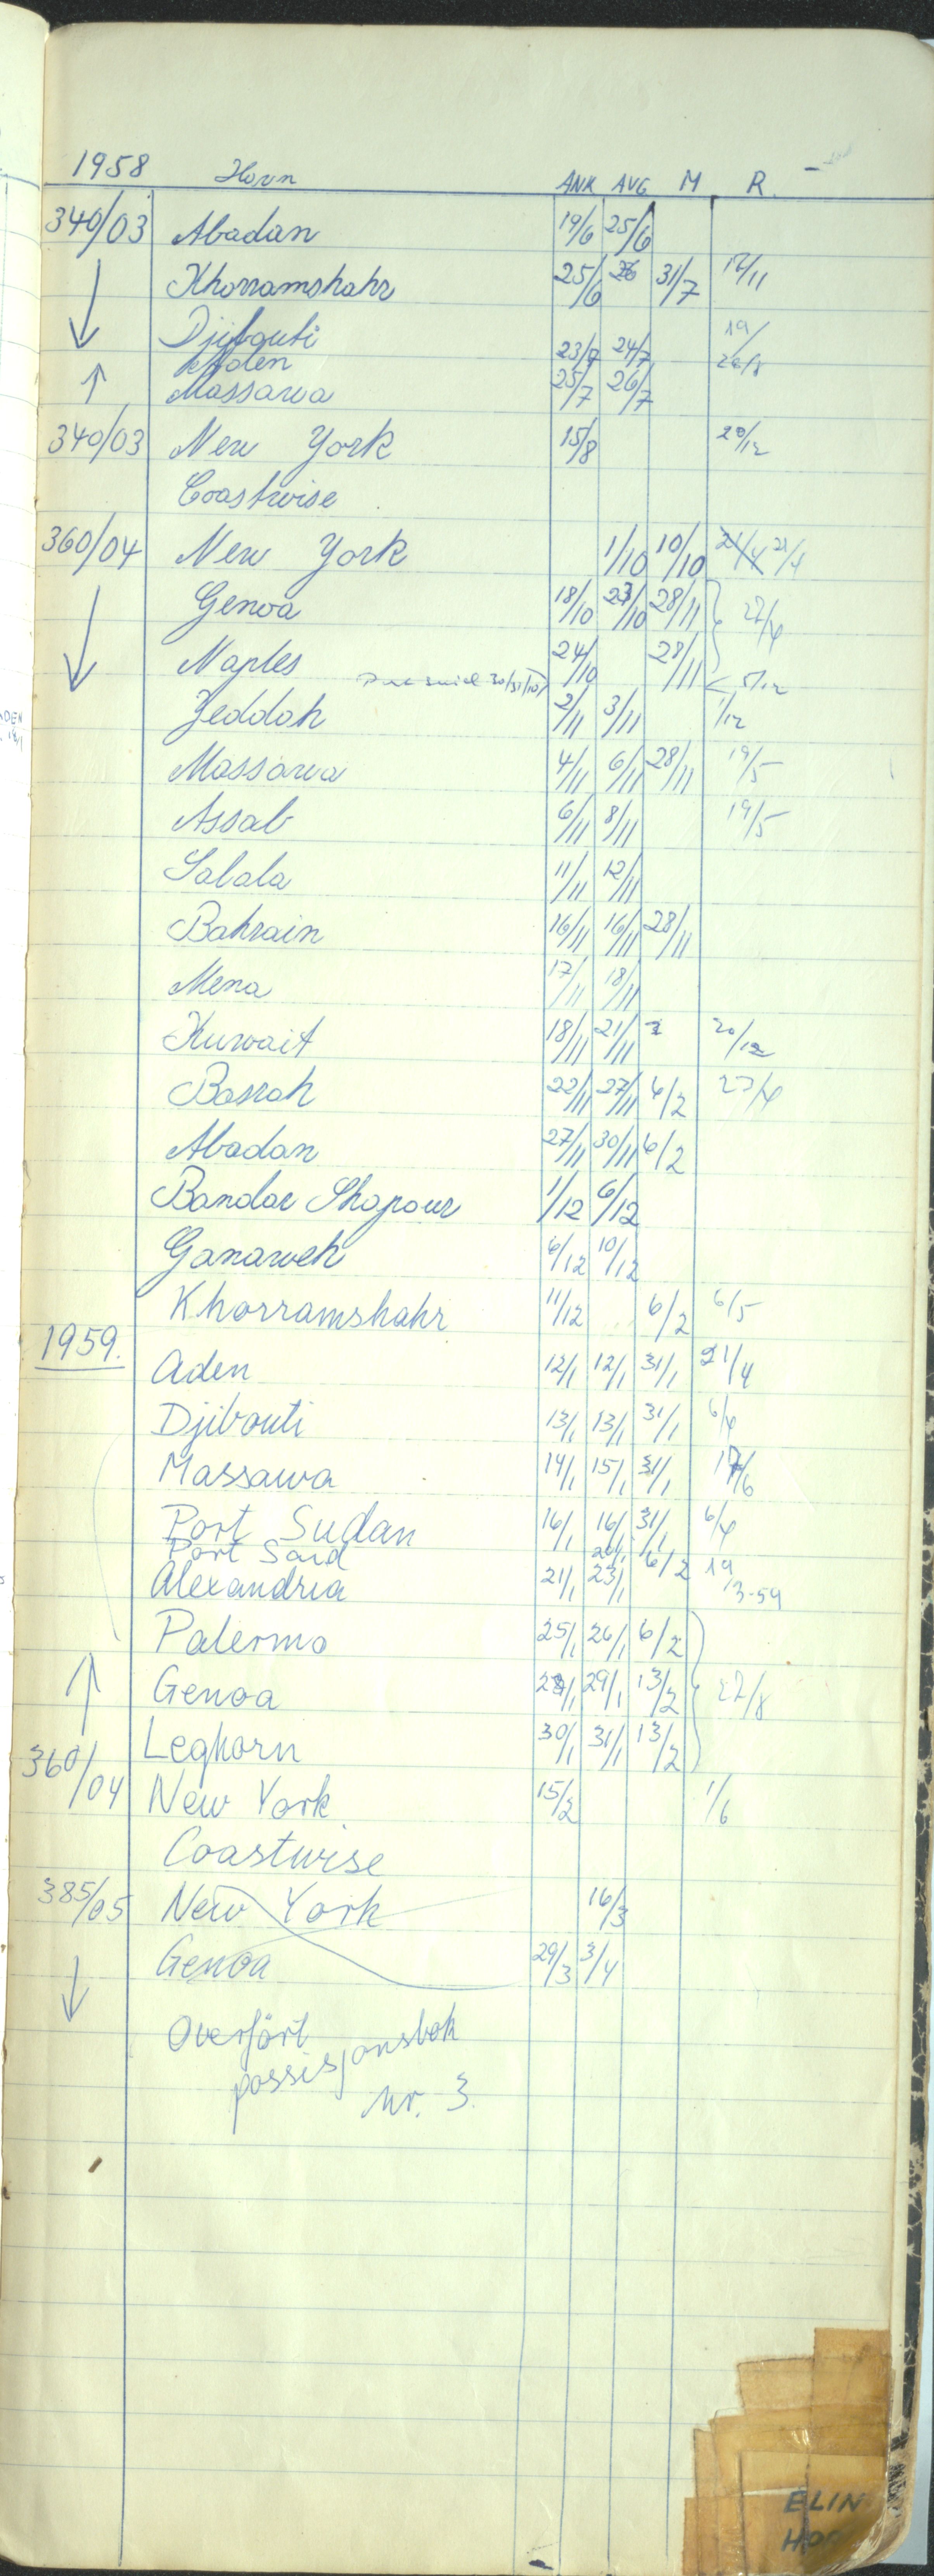 1958 Havn ANK AVG M R.
340/03 Abadan 19/6 25/6
Khorramshahr 25/6 26 31/7 12/11
Djibouti 23/7 24/7 19/
Aden 26/8
Massawa 25/7 26/7
340/03 New York 15/8 20/12
Coastwise
360/04 New York 1/10 10/10 21/4 21/4
Genoa 18/10 23/10 28/11 27/4
Naples 24/10 28/11
30/31/10 5/12
Jeddah 2/11 3/11 1/12
Massawa 4/11 6/11 28/11 19/5
Assab 6/11 8/11 19/5
Salala 11/11 12/11
Bahrain 16/11 16/11 28/11
Mena 17/11 18/11
Kuwait 18/11 21/11 20/12
Basrah 22/11 27/11 6/2 27/4
Abadan 27/11 30/11 6/2
Bandar Shapour 1/12 6/12
Ganaweh 6/12 10/12
Khorramshahr 11/12 6/2 6/5
1959.
Aden 12/1 12/1 31/1 21/4
Djibouti 13/1 13/1 31/1 6/4
Massawa 14/1 15/1 31/1 /6
Port Sudan 16/1 16/1 31/1 6/4
Port Said 20/1
Alexandria 21/1 23/1 6/2 19/3-59
Palermo 25/1 26/1 6/2
Genoa 29/1 13/2 27/8
Leghorn 30/1 31/1 13/2
360/04 New York 15/2 1/6
Coastwise
385/05 New York 16/3
Genoa 29/3 3/4
Overført
possisjonsbok
nr. 3.
DEN
ELIN
HO